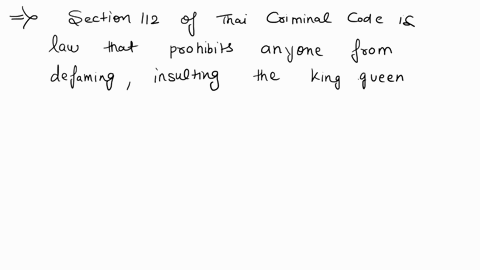 => Section 112 of Thai Criminal Code is
law that prohibits anyone from
defaming, insulting the king queen